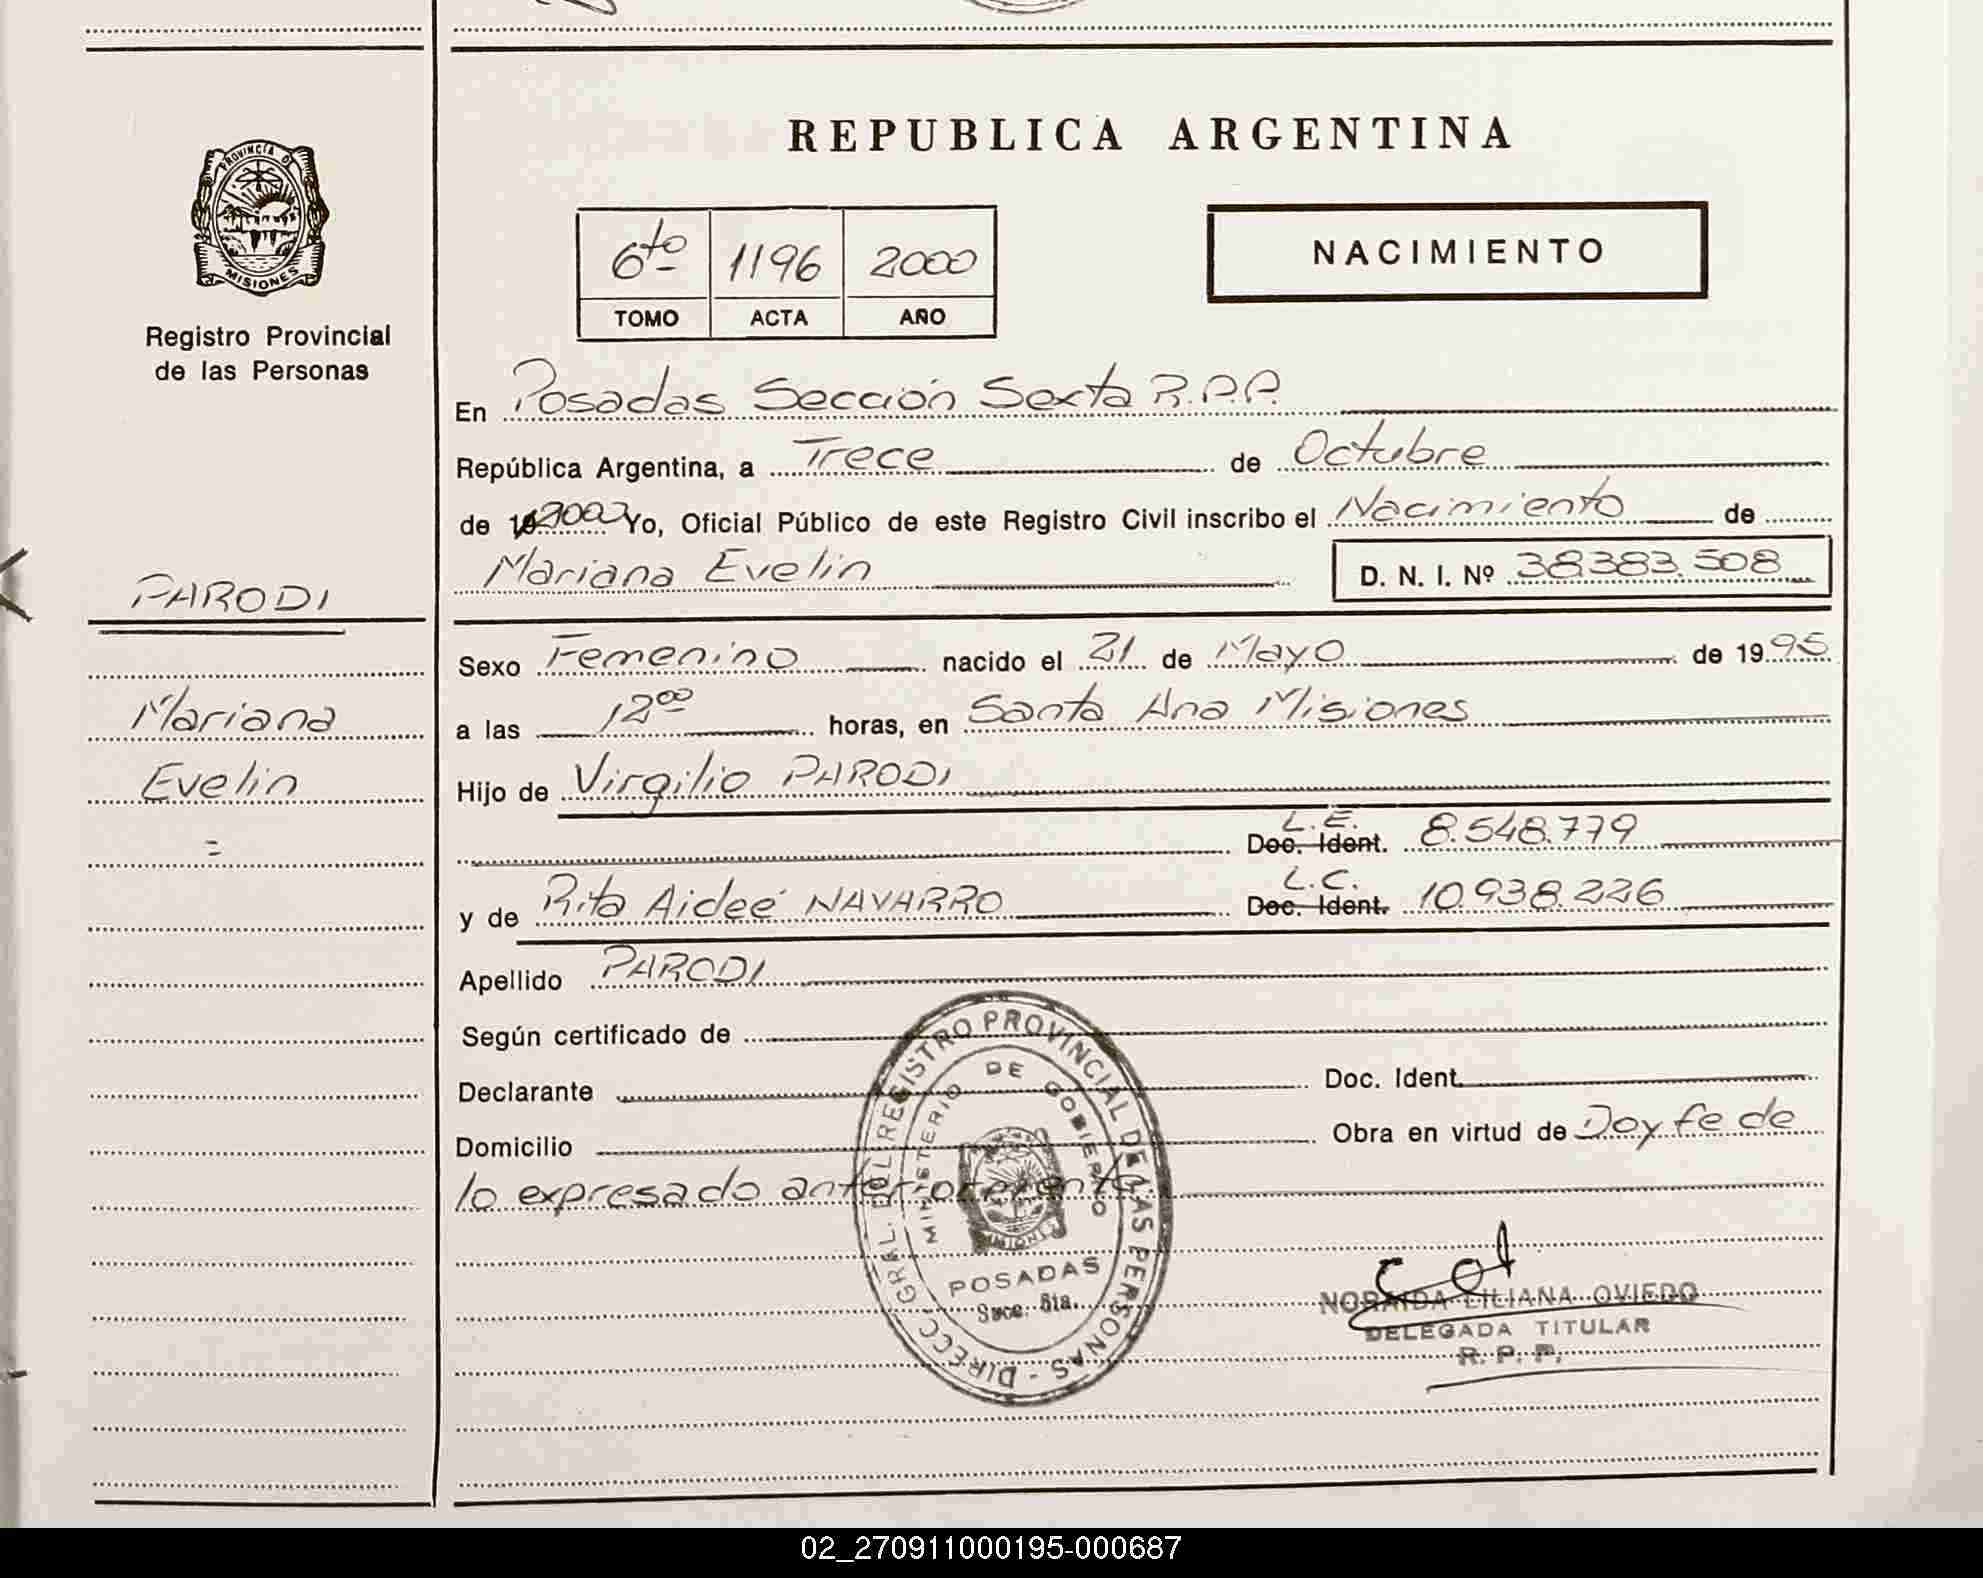 PROVINCIA D
MISIONES
Registro Provincial
de las Personas
PARODI
Mariana
Evelin
REPUBLICA ARGENTINA
6to 1196 2000
TOMO ACTA AÑO
NACIMIENTO
En Posadas Sección Sexta R.P.P.
República Argentina, a Trece de Octubre
de 19 2000 Yo, Oficial Público de este Registro Civil inscribo el Nacimiento de
Mariana Evelin D. N. I. Nº 38383.508
Sexo Femenino nacido el 21 de Mayo de 1995
a las 12 00 horas, en Santa Ana Misiones
Hijo de Virgilio PARODI
L.E.
Doc. Ident. 8.548.779
L.C.
y de Rita Aideé NAVARRO Doc. Ident. 10.938.226
Apellido PARODI
Según certificado de
Declarante Doc. Ident.
Domicilio Obra en virtud de Doy fe de
lo expresado anteriormente
DIRECC. GRAL. DEL REGISTRO PROVINCIAL DE LAS PERSONAS -
MINISTERIO DE GOBIERNO
POSADAS
Succ. 6ta.
NORAIDA LILIANA OVIEDO
DELEGADA TITULAR
R. P. P.
02_270911000195-000687